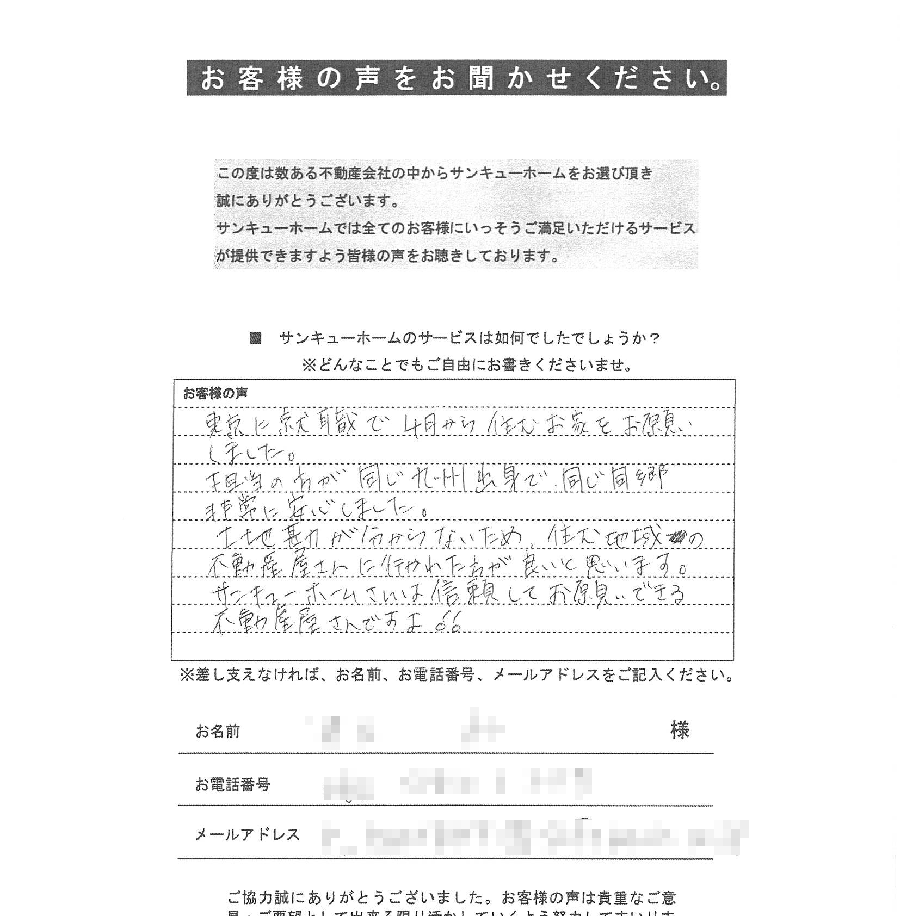 お客様の声をお聞かせください。
この度は数ある不動産会社の中からサンキューホームをお選び頂き
誠にありがとうございます。
サンキューホームでは全てのお客様にいっそうご満足いただけるサービス
が提供できますよう皆様の声をお聴きしております。
■ サンキューホームのサービスは如何でしたでしょうか？
※どんなことでもご自由にお書きくださいませ。
お客様の声
東京に就職で4月から住むお家をお願い
しました。
担当の方が同じ九州出身で、同じ同郷
非常に安心しました。
土地勘が分からないため、住む地域の
不動産屋さんに行かれた方が良いと思います。
サンキューホームさんは信頼してお願いできる
不動産屋さんですよ
※差し支えなければ、お名前、お電話番号、メールアドレスをご記入ください。
お名前 様
お電話番号
メールアドレス
ご協力誠にありがとうございました。お客様の声は貴重なご意